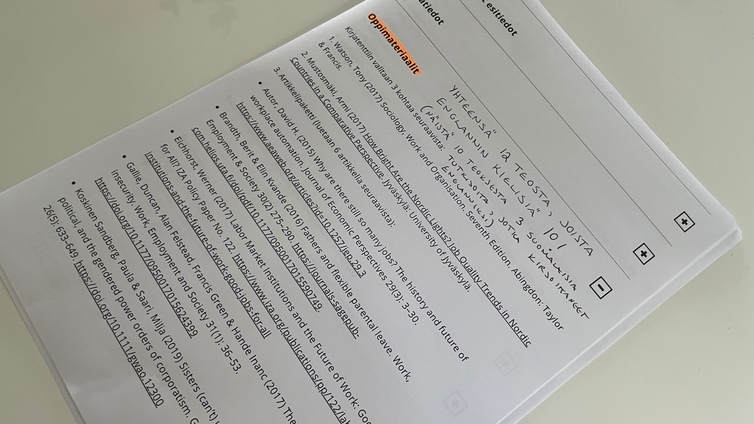 esitiedot
atiedot
Oppimateriaalit
YHTEENSÄ 12 TEOSTA, JOISTA
ENGLANNIN KIELISIÄ 10!
(NÄISTÄ 10 TEOKSESTA 3 SUOMALAISIA
TUTKIJOITA, JOTKA KIRJOITTANEET
ENGLANNIKSI)
Kirjatenttiin valitaan 3 kohtaa seuraavista:
1. Watson, Tony (2017) Sociology, Work and Organisation. Seventh Edition. Abingdon: Taylor
& Francis.
2. Mustosmäki, Armi (2017) How Bright Are the Nordic Lights? Job Quality Trends in Nordic
Countries in a Comparative Perspective. Jyväskylä: University of Jyväskylä.
3. Artikkelipaketti (luetaan 6 artikkelia seuraavista):
• Autor, David H. (2015) Why are there still so many jobs? The history and future of
workplace automation. Journal of Economic Perspectives 29(3): 3-30.
https://www.aeaweb.org/articles?id=10.1257/jep.29.3.3
• Brandth, Berit & Elin Kvande (2016) Fathers and flexible parental leave. Work,
Employment & Society 30(2): 275-290. https://journals-sagepub-
com.helios.uta.fi/doi/pdf/10.1177/0950017015590749.
• Eichhorst, Werner (2017) Labor Market Institutions and the Future of Work: Goo
for All? IZA Policy Paper No. 122. https://www.iza.org/publications/pp/122/lab
institutions-and-the-future-of-work-good-jobs-for-all
• Gallie, Duncan, Alan Felstead, Francis Green & Hande Inanc (2017) The
insecurity. Work, Employment and Society 31(1): 36-53.
https://doi.org/10.1177/0950017015624399
• Koskinen Sandberg, Paula & Saari, Milja (2019) Sisters (can't)
political, and the gendered power orders of corporatism. G
26(5): 633-649. https://doi.org/10.1111/gwao.12300